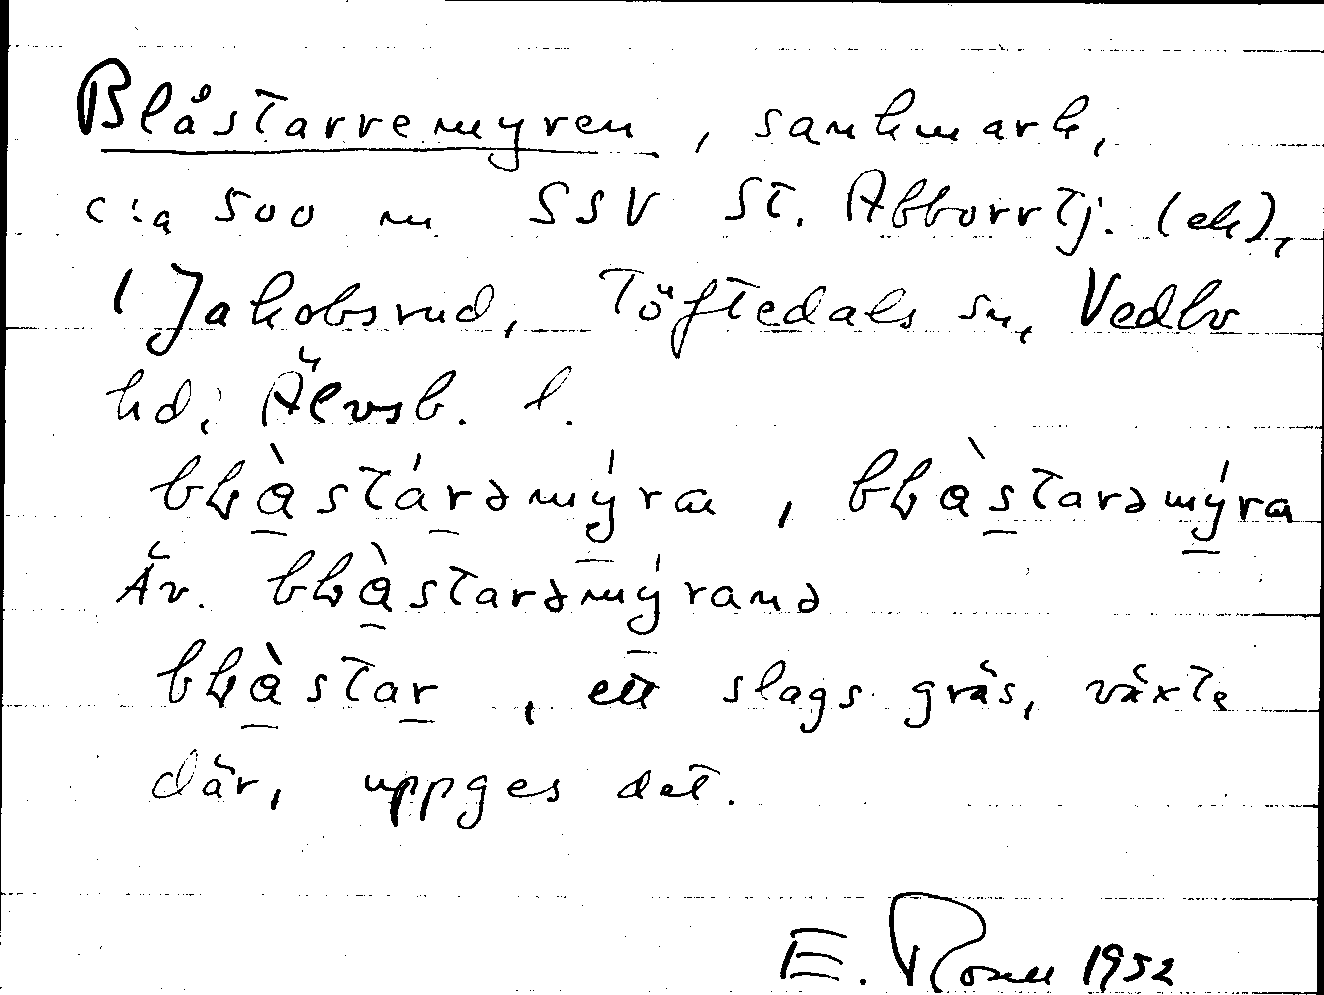 Blåstarremyren, sankmark,
c:a 500 m SSV St. Abborrtj. (ek),
i Jakobsrud, Töftedals sn, Vedbo
hd, Älvsb. l.
bɫɑ̀stárəmýra, bɫɑ̀starəmýra
Äv. bɫɑ̀starəmýranə
bɫɑ̀star, ett slags gräs, växte
där, uppges det.
E. 1952